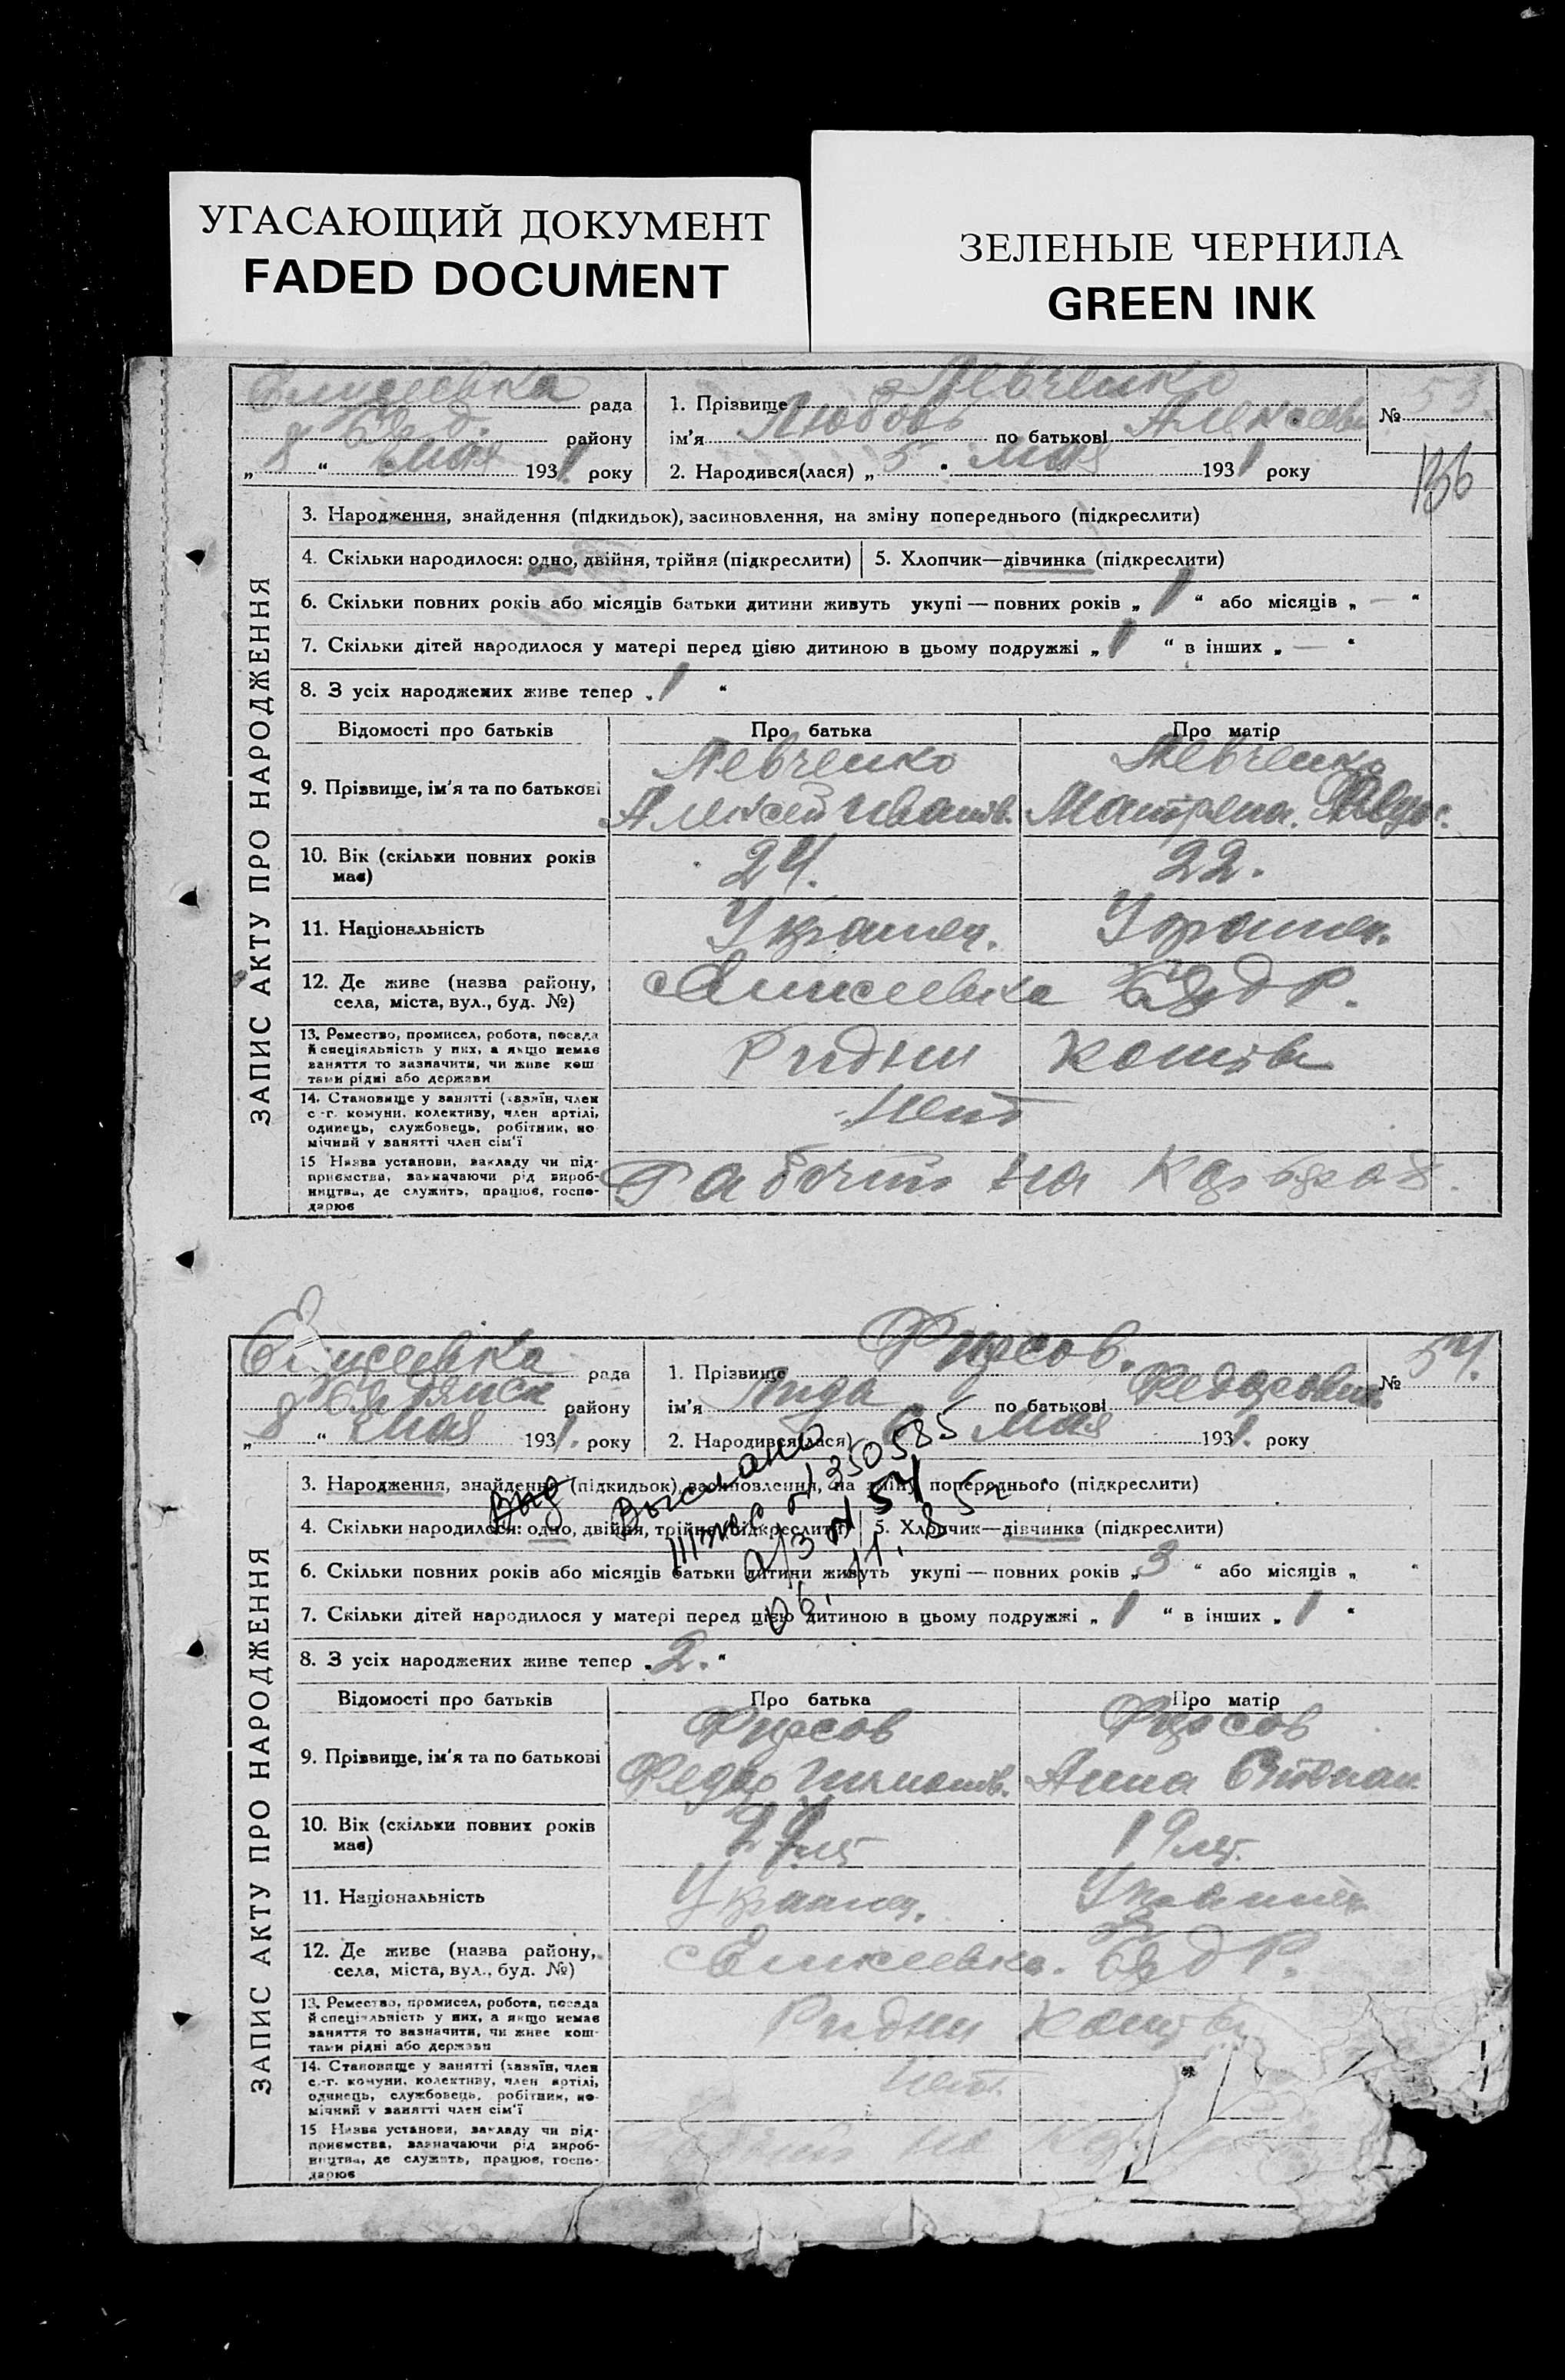 УГАСАЮЩИЙ ДОКУМЕНТ
FADED DOCUMENT
ЗЕЛЕНЫЕ ЧЕРНИЛА
GREEN INK
ЗАПИС АКТУ ПРО НАРОДЖЕННЯ
рада
району
„ 8 “ мая 1931. року
1. Прізвище Левченко
№ 53.
ім'я Любовь по батькові
2. Народився(лася) „ 5 " мая 1931 року
136
3. Народження, знайдення (підкидьок), засиновлення, на зміну попереднього (підкреслити)
4. Скільки народилося: одно, двійня, трійня (підкреслити)
5. Хлопчик—дівчинка (підкреслити)
6. Скільки повних років або місяців батьки дитини живуть укупі — повних років „ 1 “ або місяців „ — "
7. Скільки дітей народилося у матері перед цією дитиною в цьому подружжі „ 1 “ в інших „ — "
8. З усіх народжених живе тепер „ 1 "
Відомості про батьків Про батька Про матір
9. Прізвище, ім'я та по батькові
Левченко
Алексей Иванов.
Левченко
Матрена.
10. Вік (скільки повних років має)
24. 22.
11. Національність
Украинец.
12. Де живе (назва району,
села, міста, вул., буд. №)
13. Ремество, промисел, робота, посада
й спеціяльність у них, а якщо немає
заняття то зазначити, чи живе кош
тами рідні або держави
14. Становище у занятті (хазяїн, член
с.-г. комуни, колективу, член артілі,
одинець, службовець, робітник, по
мічний у занятті член сім'ї
нет
15 Назва установи, закладу чи під-
приємства, зазначаючи рід вироб-
ництва, де служить, працює, госпо-
дарює
на
ЗАПИС АКТУ ПРО НАРОДЖЕННЯ
рада
району
„ 8 “ мая 1931. року
1. Прізвище Фирсов.
№ 54.
ім'я Лида по батькові
2. Народився(лася) 6 мая 1931. року
3. Народження, знайдення (підкидьок), засиновлення, на зміну попереднього (підкреслити)
4. Скільки народилося: одно, двійня, трійня (підкреслити)
5. Хлопчик—дівчинка (підкреслити)
6. Скільки повних років або місяців батьки дитини живуть укупі — повних років „ 3 “ або місяців „ "
7. Скільки дітей народилося у матері перед цією дитиною в цьому подружжі „ 1 “ в інших „ 1 "
8. З усіх народжених живе тепер „ 2. "
Выслано
350585
а/з № 54
Відомості про батьків Про батька Про матір
9. Прізвище, ім'я та по батькові
Фирсов
Федор
Фирсов
Анна
10. Вік (скільки повних років має)
19 лет.
11. Національність
Украинец.
12. Де живе (назва району,
села, міста, вул., буд. №)
13. Ремество, промисел, робота, посада
й спеціяльність у них, а якщо немає
заняття то зазначити, чи живе кош-
тами рідні або держави
14. Становище у занятті (хазяїн, член
с.-г. комуни, колективу, член артілі,
одинець, службовець, робітник, по-
мічний у занятті член сім'ї
нет.
15 Назва установи, закладу чи під-
приємства, зазначаючи рід вироб-
ництва, де служить, працює, госпо-
дарює
на